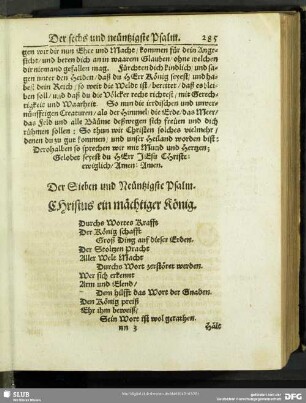 Der sechs und neüntzigste Psalm. 285
gen wir dir nun Ehre und Macht/ kommen für dein Ange-
sicht/ und beten dich an in waarem Glauben/ ohne welchen
dir niemand gefallen mag. Fürchten dich kindlich/ und sa-
gen unter den Heiden/ daß du HErr König seyest/ und ha-
best dein Reich/ so weit die Weldt ist/ bereitet/ daß es blei-
ben soll/ und daß du die Völcker recht richtest/ mit Gerech-
tigkeit und Waarheit. So nun die irrdischen und unver-
nünfftigen Creaturen/ als der Himmel/ die Erde/ das Meer/
das Feld und alle Bäume deßwegen sich freüen und dich
rühmen sollen; So thun wir Christen solches vielmehr/
denen du zu gut kommen/ und unser Heiland worden bist:
Derohalben so sprechen wir mit Mund und Hertzen;
Gelobet seyest du HErr JEsu Christe:
ewiglich/ Amen: Amen.
Der Sieben und Neüntzigste Psalm.
Christus ein mächtiger König.
Durchs Wortes Krafft
Der König schafft
Groß Ding auf dieser Erden.
Der Stoltzen Pracht
Aller Welt Macht
Durchs Wort zerstöret werden.
Wer sich erkennt
Arm und Elend/
Dem hilfft das Wort der Gnaden.
Den König preiß
Ehr ihm beweiß/
Sein Wort ist wol gerathen.
nn 3 Hält
SLUB
DFG